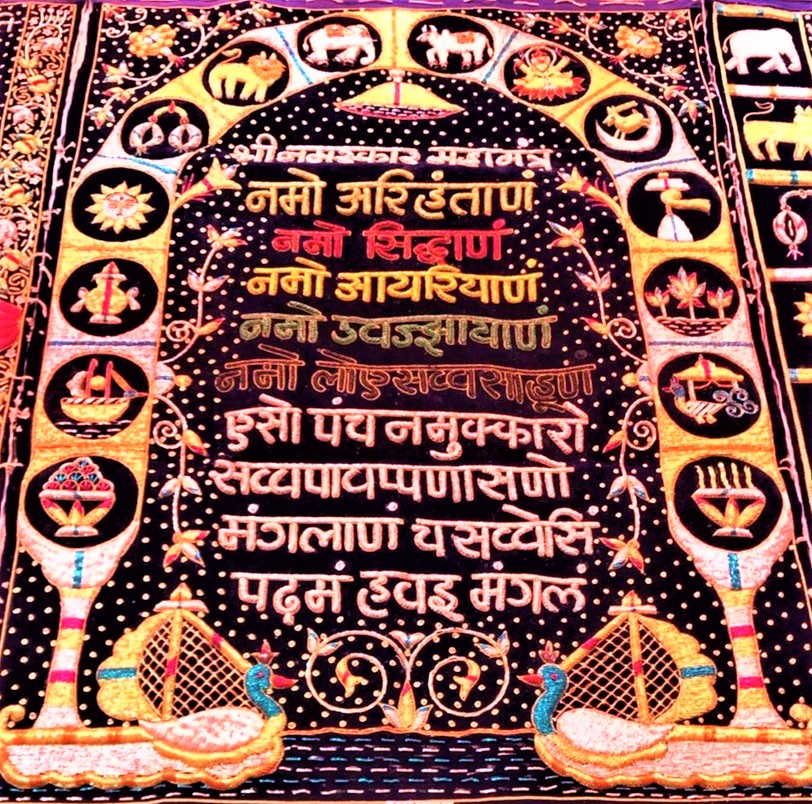 श्री नमस्कार महामंत्र
नमो अरिहंताणं
नमो सिद्धाणं
नमो आयरियाणं
नमो उवज्झायाणं
नमो लोएसव्वसाहूणं
एसो पंच नमुक्कारो
सव्वपावप्पणासणो
मंगलाणं च सव्वेसिं
पढमं हवइ मंगलं